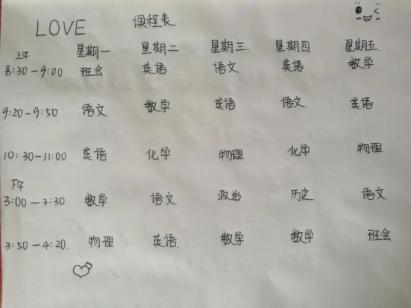 LOVE 课程表
星期一 星期二 星期三 星期四 星期五
上午
8:30-9:00 班会 英语 语文 英语 数学
9:20-9:50 语文 数学 英语 语文 英语
10:30-11:00 英语 化学 物理 化学 物理
下午
3:00-3:30 数学 语文 政治 历史 语文
3:50-4:20. 物理 英语. 数学 数学 班会